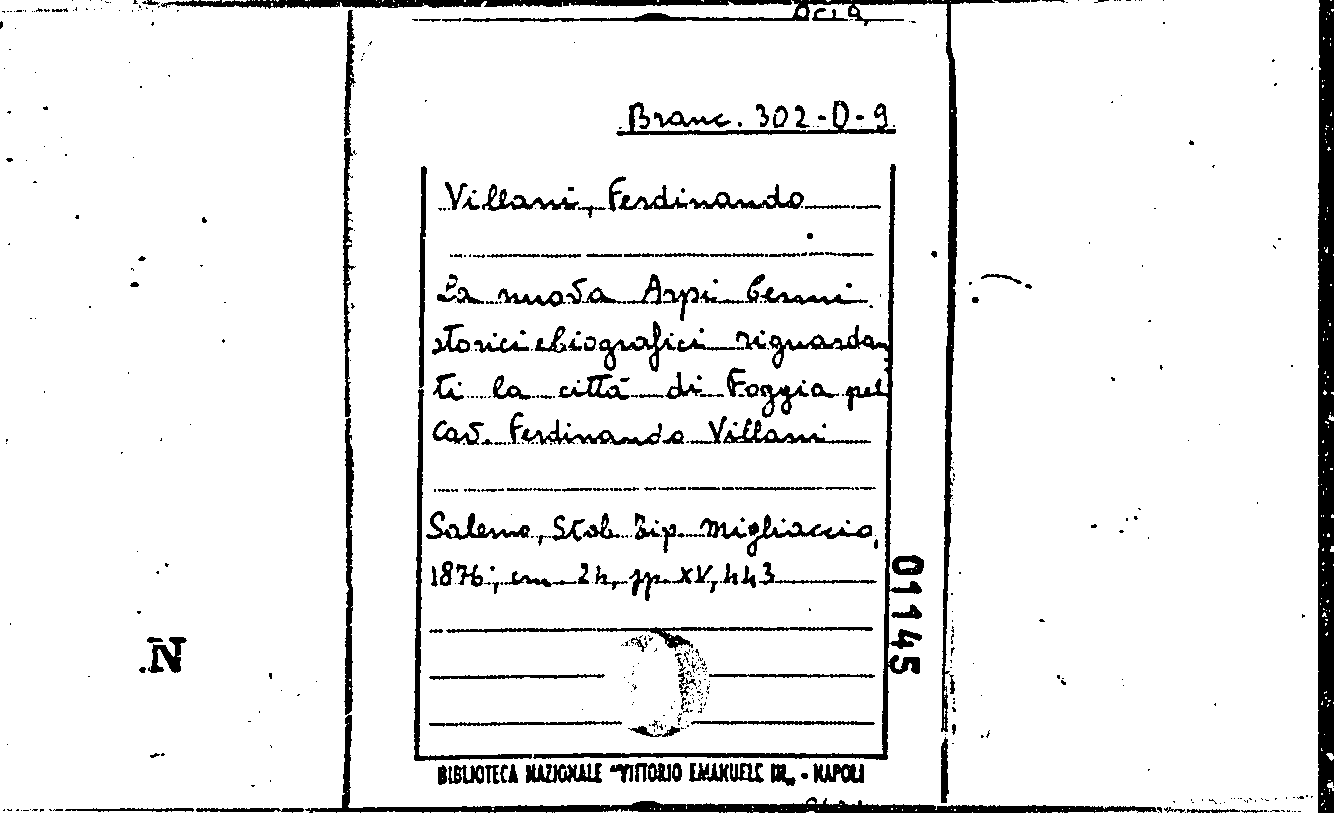 Branc. 302-D-9
Villani, Ferdinando
La nuova Arpi Cenni
storici e biografici riguardan
ti la città di Foggia pel
Cav. Ferdinando Villani
Salerno, Stab. Tip. Migliaccio,
1876; cm 24, pp. XV, 443
01145
N
BIBLIOTECA NAZIONALE "VITTORIO EMANUELE III„ - NAPOLI